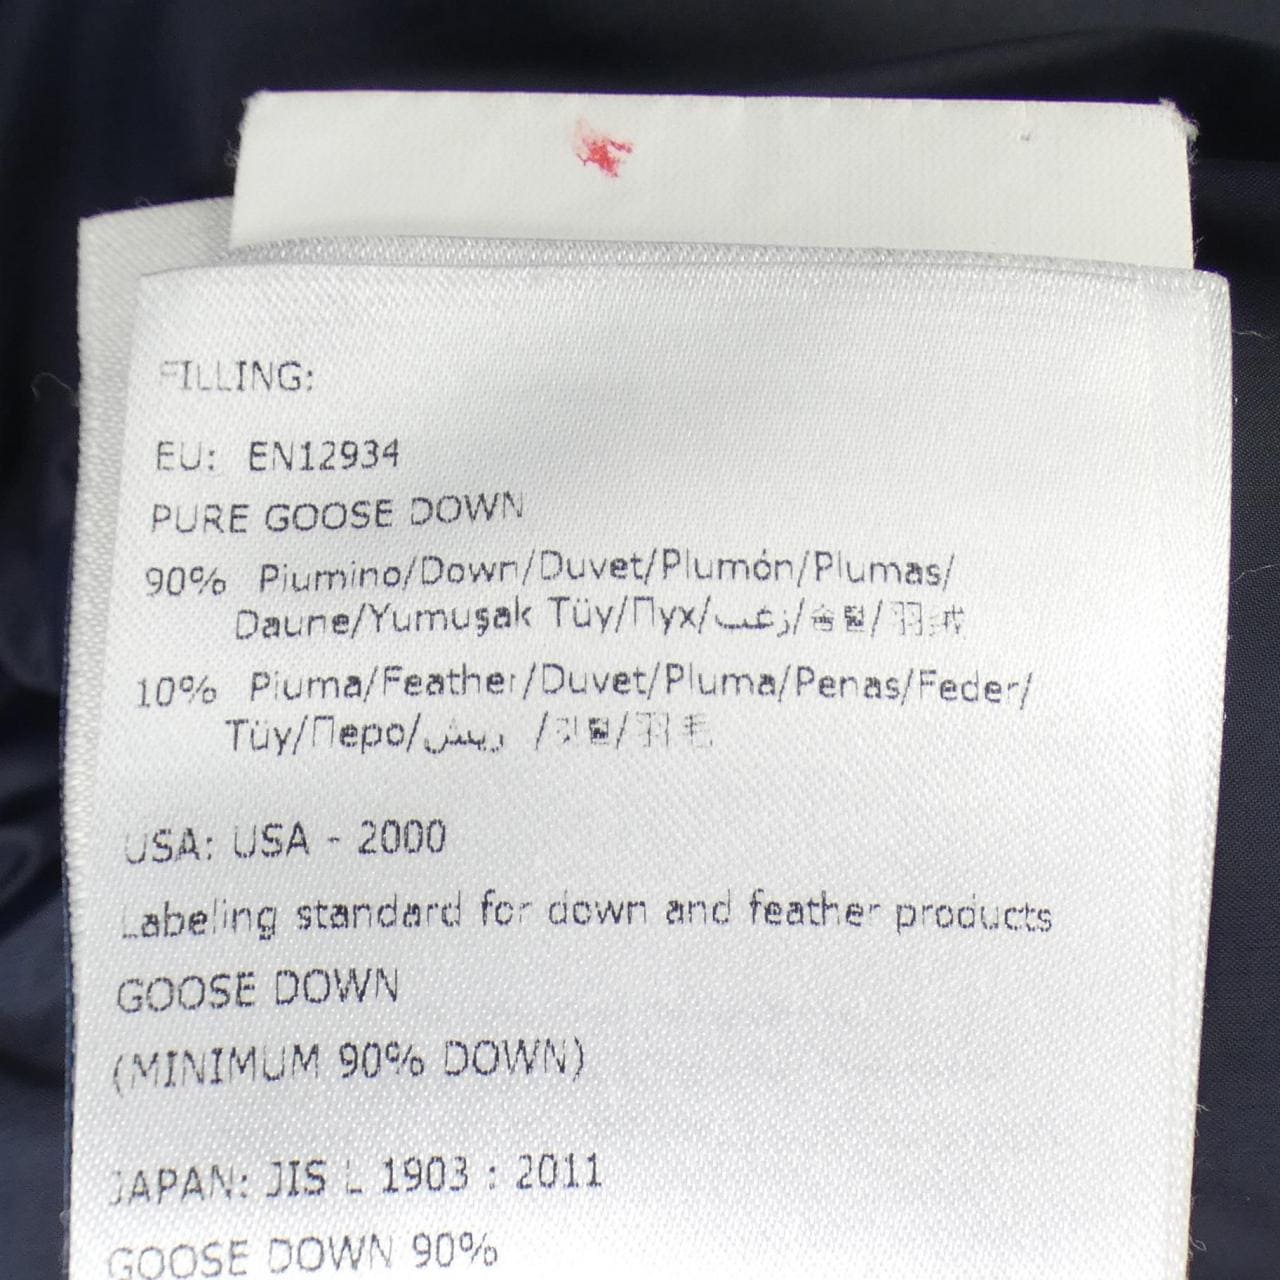 FILLING:
EU: EN12934
PURE GOOSE DOWN
90% Piumino/Down/Duvet/Plumón/Plumas/
Daune/Yumuşak Tüy/Пух/زغب/솜털/羽绒
10% Piuma/Feather/Duvet/Pluma/Penas/Feder/
Tüy/Перо/ريش /깃털/羽毛
USA: USA - 2000
Labeling standard for down and feather products
GOOSE DOWN
(MINIMUM 90% DOWN)
JAPAN: JIS L 1903 : 2011
GOOSE DOWN 90%